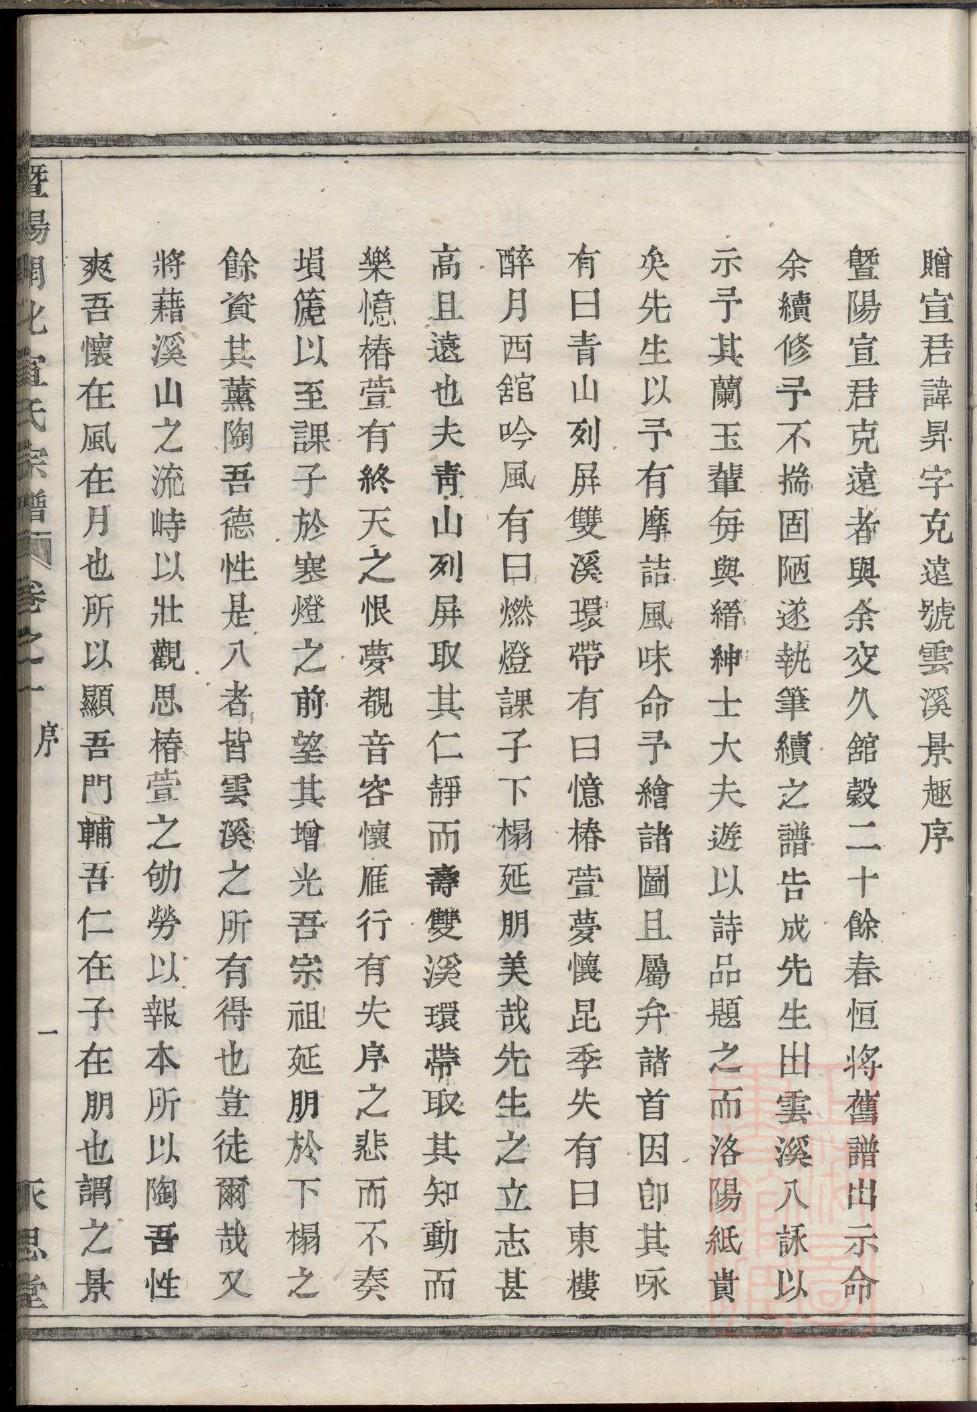 贈宣君諱昇字克遠號雲溪景趣序
曁陽宣君克遠者與余交久舘穀二十餘春恒將舊譜出示命
余續修予不揣固陋遂執筆續之譜告成先生出雲溪八詠以
示予其蘭玉輩每與縉紳士大夫遊以詩品題之而洛陽紙貴
矣先生以予有摩詰風味命予繪諸圖且屬弁諸首因卽其咏
有曰青山列屏雙溪環帶有曰憶椿萱夢懷昆季失有曰東樓
醉月西舘吟風有曰燃燈課子下榻延朋美哉先生之立志甚
高且遠也夫青山列屏取其仁靜而壽雙溪環帶取其知動而
樂憶椿萱有終天之恨夢覩音容懷雁行有失序之悲而不奏
塤箎以至課子於寒燈之前望其增光吾宗祖延朋於下榻之
餘資其薰陶吾德性是八者皆雲溪之所有得也豈徒爾哉又
將藉溪山之流峙以壯觀思椿萱之劬勞以報本所以陶吾性
爽吾懷在風在月也所以顯吾門輔吾仁在子在朋也謂之景
暨陽開化宣氏宗譜 卷之一 序 一 永思堂